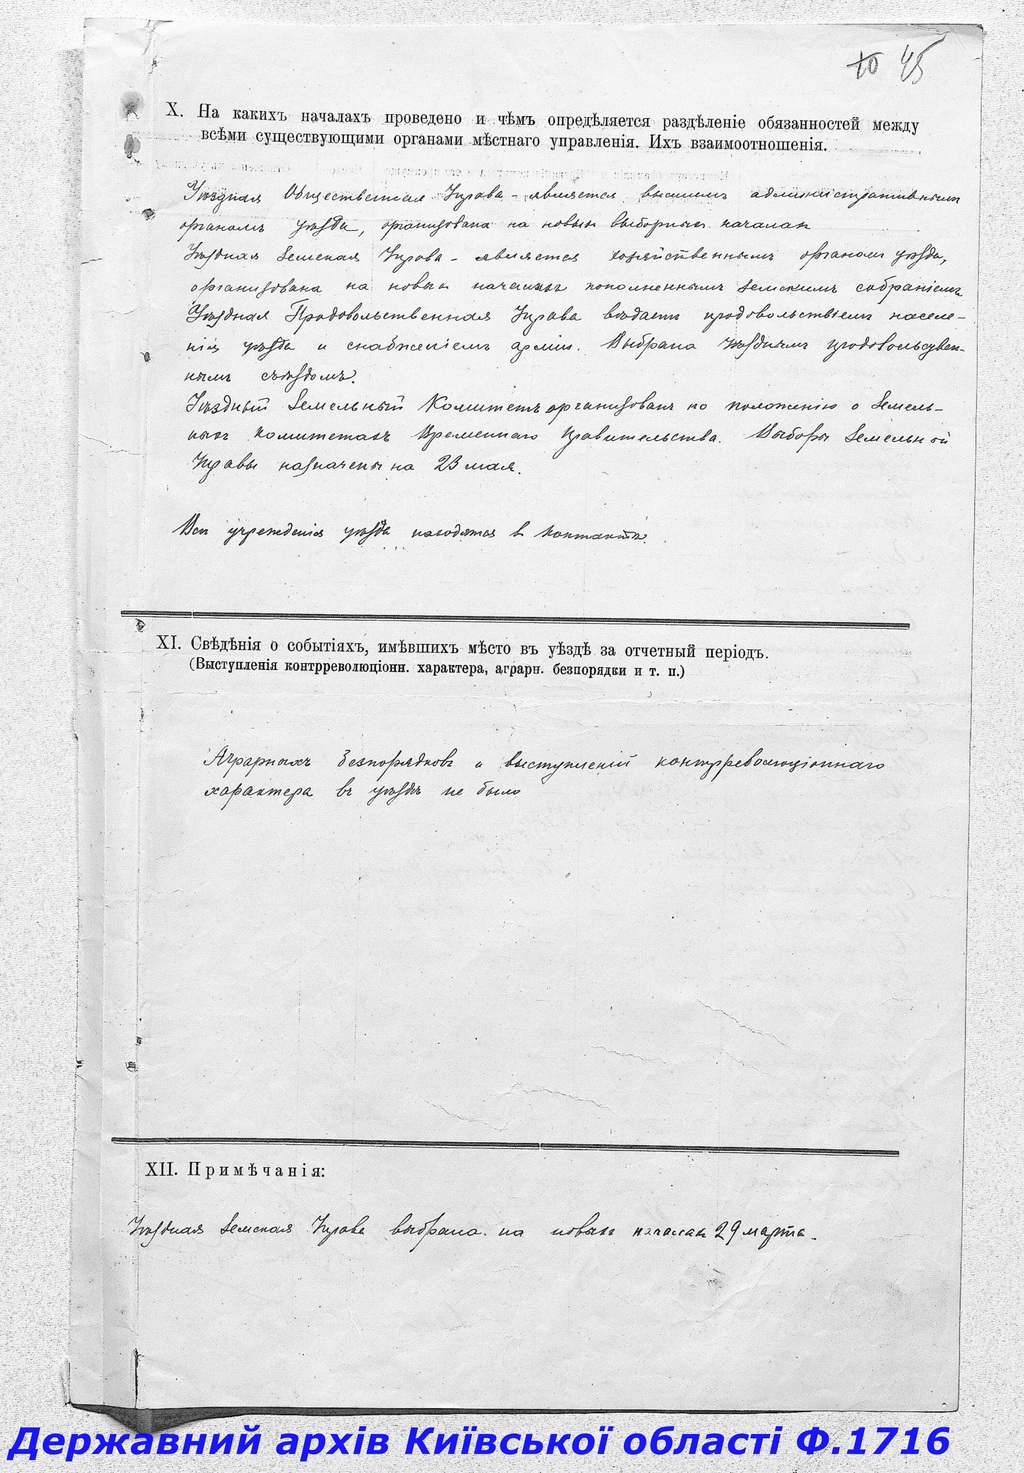 45
X. На какихъ началахъ проведено и чѣмъ опредѣляется раздѣленіе обязанностей между
всѣми существующими органами мѣстнаго управленія. Ихъ взаимоотношенія.
Уѣздная Общественная Управа - является высшимъ административнымъ
органомъ уѣзда, организована на новыхъ выборныхъ началах
Уѣздная Земская Управа - является хозяйственнымъ органом уѣзда,
организована на новыхъ началахъ пополненнымъ земскимъ собраніемъ
Уѣздная Продовольственная Управа вѣдаетъ продовольствіемъ населе-
нія уѣзда и снабженіемъ арміи. Выбрана Уѣзднымъ продовольствен-
нымъ съѣздомъ.
Уѣздный Земельный Комитетъ организованъ по положенію о Земель-
ныхъ Комитетахъ Временнаго Правительства. Выборы Земельной
Управы назначены на 23 мая.
Всѣ учрежденія уѣзда находятся в контактѣ.
XI. Свѣдѣнія о событіяхъ, имѣвшихъ мѣсто въ уѣздѣ за отчетный періодъ.
(Выступленія контрреволюціонн. характера, аграрн. безпорядки и т. п.)
Аграрныхъ безпорядковъ и выступленій контрреволюціоннаго
характера въ уѣздѣ не было
XII. Примѣчанія:
Уѣздная Земская Управа выбрана на новыхъ началах 29 марта.
Державний архів Київської області Ф.1716